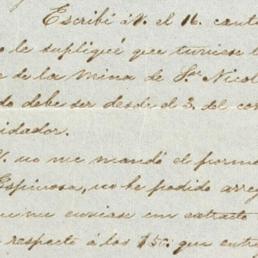 Escribí á V. el 16. cant
lo le supliqué que tuviese l
de la mina de Sn Nicol
do debe ser desde el 3. del co
idador.
V. no me mandó el form
Espinosa, no he podido arre
me enviase un extracto
respecto á los $50. que entr